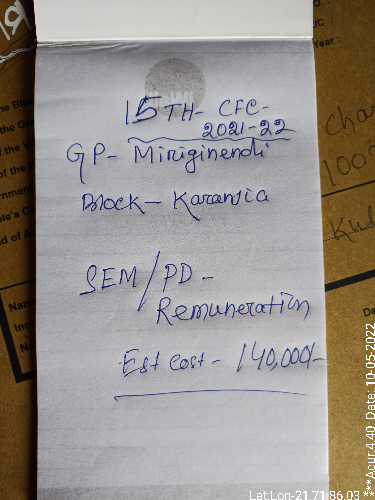 15TH- CFC-
2021-22
GP- Miriginendi
Block- Karanjia
SEM/PD-
Remuneration
Est cost- 140,000/-
Year:
100
Lat Lon-21.71 86.03 ***Acur 4.40 Date: 10-05-2022